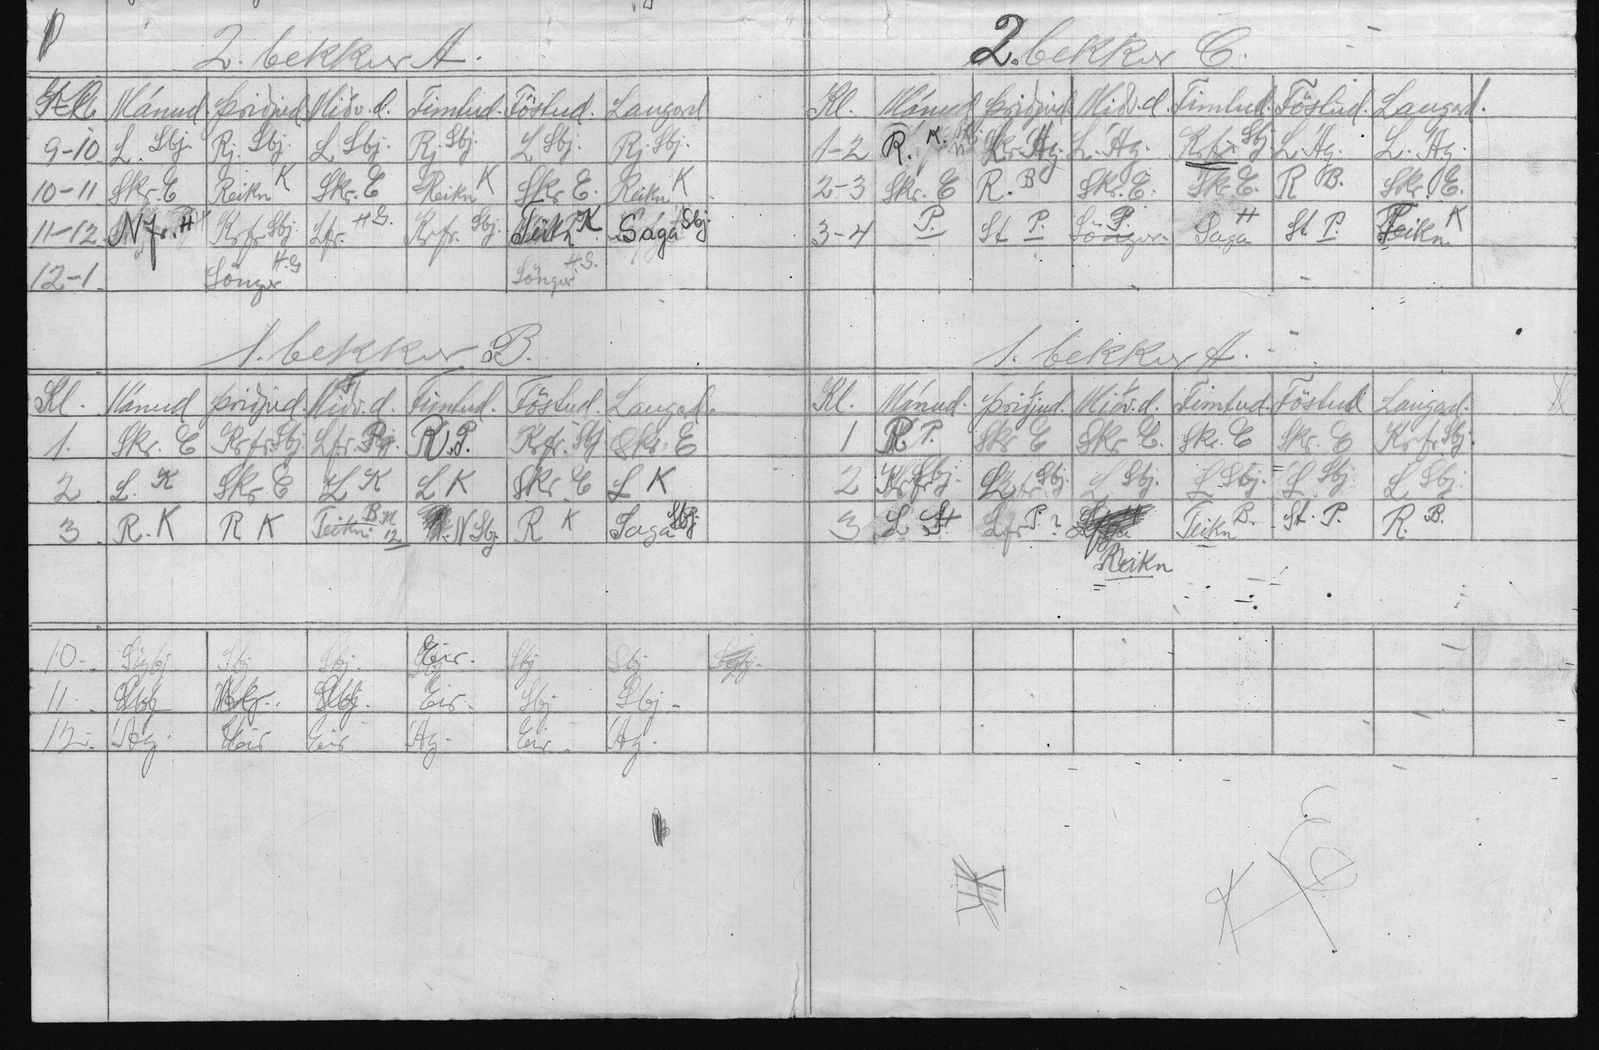 2. bekkur A.
Kl. Mánud. Þriðjud. Miðv.d. Fimtud. Föstud. Laugard
9-10 L. Sbj. Rj. Sbj. L Sbj. Rj. Sbj. L Sbj. Rj. Sbj.
10-11 Skr. E Reikn K Skr. E Reikn K Skr. E. Reikn K
11-12 N.fr. H Kr.fr. Sbj. Lfr. H G. Kr.fr. Sbj. Teikn K. Saga Sbj
12-1 Söngur H.G Söngur H.G.
2. bekkur C.
Kl. Mánud Þriðjud. Miðv.d Fimtud. Föstud. Laugard.
1-2 R. K. Skr. Hg. L. Hg. Kr.fr. Sbj L. Hg. L. Hg.
2-3 Skr. E R. B Skr. E. Skr. E. R B. Skr. E.
3-4 P. St P. Söngur P. Saga H St P. Teikn K
1. bekkur B.
Kl. Mánud Þriðjud. Miðv.d. Fimtud. Föstud. Laugard.
1. Skr. E Kr.fr. Sbj Lfr. R. P. Kr.fr. Sbj Skr. E
2 L. K Skr. E L K L K Skr. E L K
3 R. K R K Teikn B. 12 N Sbj R K Saga Sbj
1. bekkur A.
Kl. Mánud. Þriðjud. Miðv.d. Fimtud. Föstud Laugard.
1 R P. Skr E Skr E. Skr. E Skr. E Kr.fr. Sbj.
2 Kr.fr. Sbj. L Sbj. L Sbj. L Sbj. L Sbj. L Sbj.
3 L H Lfr P. ? Teikn B. St. P. R. B.
Reikn
10- Sigbj Sbj Sbj. Eir. Sbj Sbj
11- Sbj Sbj. Eir. Sbj Sbj-
12- Hg. Eir Eir Hg- Eir Hg.